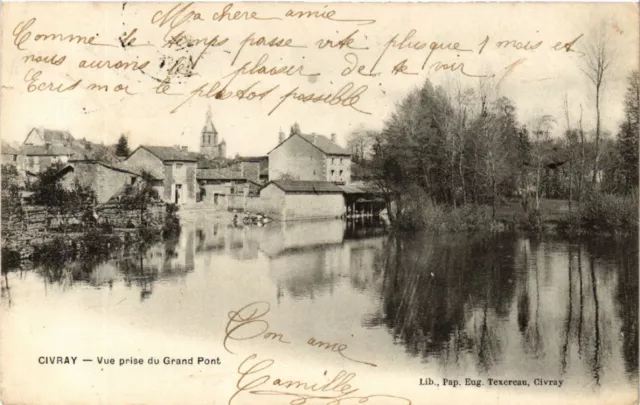 Ma chère amie
Comme le temps passe vite plus que 1 mois et
nous aurons le plaisir de te voir
Ecris moi le plutôt possible
CIVRAY — Vue prise du Grand Pont
Ton amie
Camille
Lib., Pap. Eug. Texereau, Civray